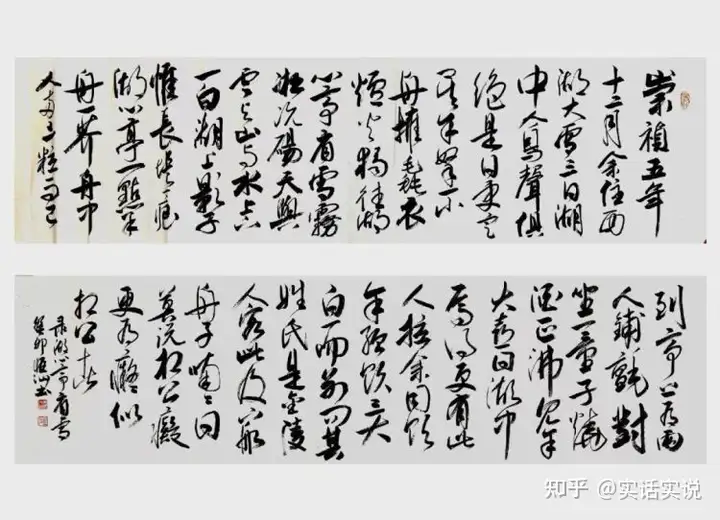 崇禎五年
十二月余住西
湖大雪三日湖
中人鳥聲俱
絕是日更定
矣余拏一小
舟擁毳衣
爐火獨往湖
心亭看雪霧
凇沆碭天與
雲与山与水上下
一白湖上影子
惟長堤一痕
湖心亭一點余
舟一芥舟中
人兩三粒而已
到亭上有兩
人鋪氈對
坐一童子燒
酒正沸見余
大喜曰湖中
焉得更有此
人拉余同飲
余強飲三大
白而別問其
姓氏是金陵
人客此及下船
舟子喃喃曰
莫說相公癡
更有癡似
相公者
录湖心亭看雪
癸卯 書
知乎 @实话实说